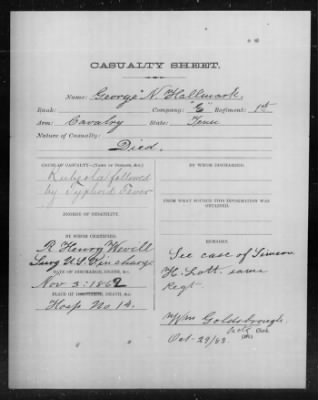 CASUALTY SHEET.
Name: George N. Hallmark.
Rank: Company: "G" Regiment: 1st
Arm: Cavalry State: Tenn
Nature of Casualty:
Died.
CAUSE OF CASUALTY—(Name of Disease, &c.)
Rubeola followed
by Typhoid Fever
DEGREE OF DISABILITY.
BY WHOM CERTIFIED.
R. Henry
Surg U.S. in charge
DATE OF DISCHARGE, DEATH, &c.
Nov 3. 1862
PLACE OF DISCHARGE, DEATH, &c.
Hosp No 14.
BY WHOM DISCHARGED.
FROM WHAT SOURCE THIS INFORMATION WAS
OBTAINED.
REMARKS.
See case of Simeon
H. same
Regt.
Wm Goldsbrough
Clerk.
Oct. 29/63.